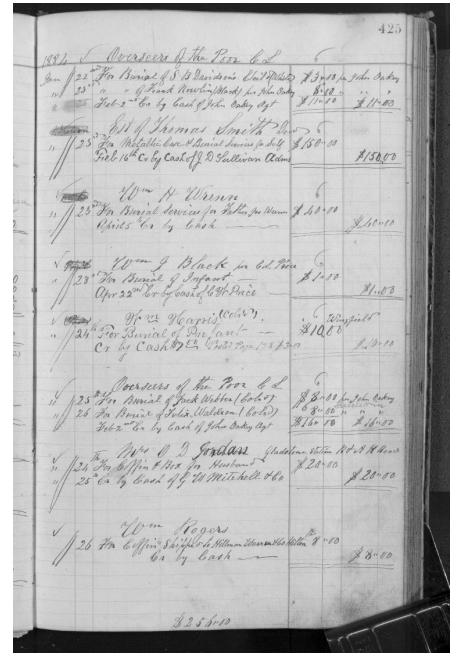 425
1884 Overseers of the Poor C L
Jany 22nd For Burial of S B Davidson's $3.00 per John Oakey
" 23rd " " of Frank Nowlin per John Oakey 8.00 " " "
" Feb 2nd Cr by Cash of John Oakey Agt $11.00 $11.00
Est of Thomas Smith
" 23rd For Metallic Case & Burial Services for Self $150.00
Feb 16th Cr by Cash of J D Sullivan Adms $150.00
Wm H Wrenn
" 23rd For Burial Services for Father per Wrenn $40.00
April 5th Cr by Cash $40.00
Wm J Black per Col Price
" 23rd For Burial of Infant $1.00
Apr 22nd Cr by Cash of Price $1.00
Wm Harris (Col'd) Wingfield
" 24th For Burial of Infant $10.00
Cr by Cash
Overseers of the Poor C L
" 25th For Burial of Jack Webber (Col'd) $8.00 per John Oakey
" 26 For Burial of Julia Waldron (Col'd) 8.00 " " "
Feb 2nd Cr by Cash of John Oakey Agt $16.00 $16.00
Mrs O D Jordan Gladstone Station
" 24th For Coffin & Box for Husband $20.00
" 25th Cr by Cash of G W Mitchell & Co $20.00
Wm Rogers
" 26 For Coffin Shipped to 8.00
Cr by Cash $8.00